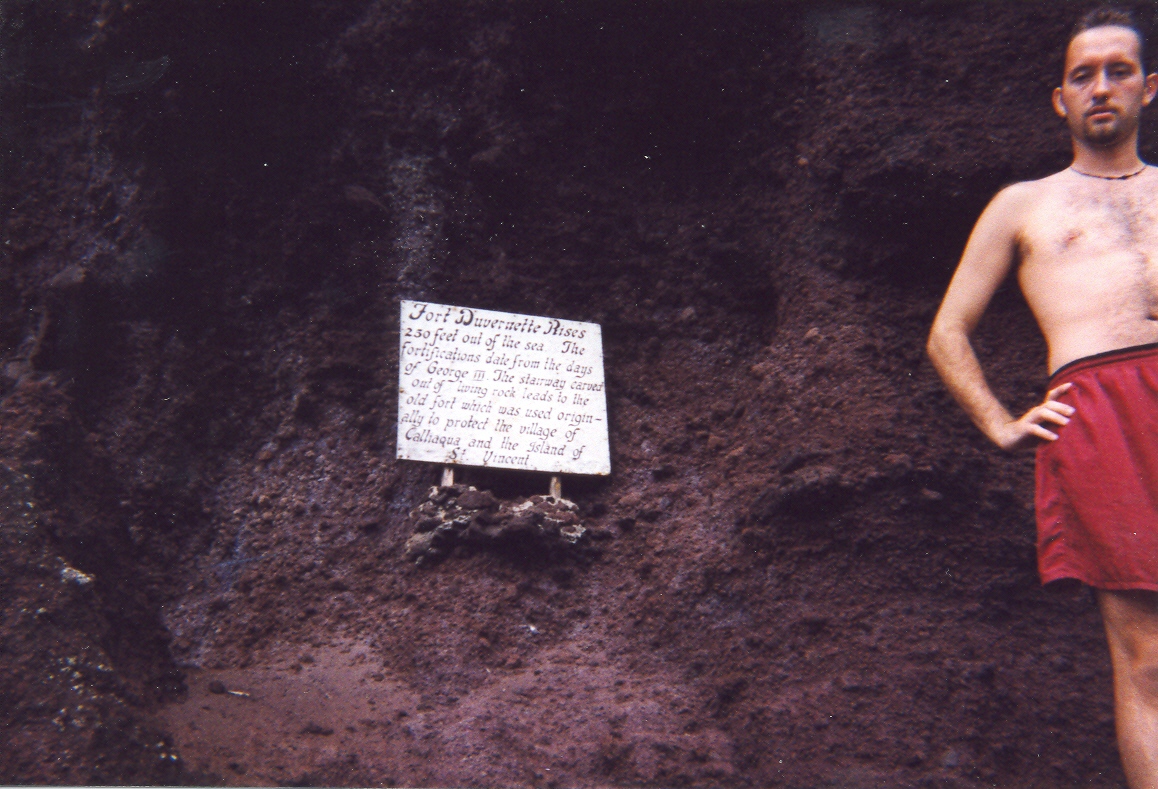 Fort Duvernette Rises
250 feet out of the sea. The
fortifications date from the days
of George III. The stairway carved
out of living rock leads to the
old fort which was used origin-
ally to protect the village of
Calliaqua and the Island of
St. Vincent